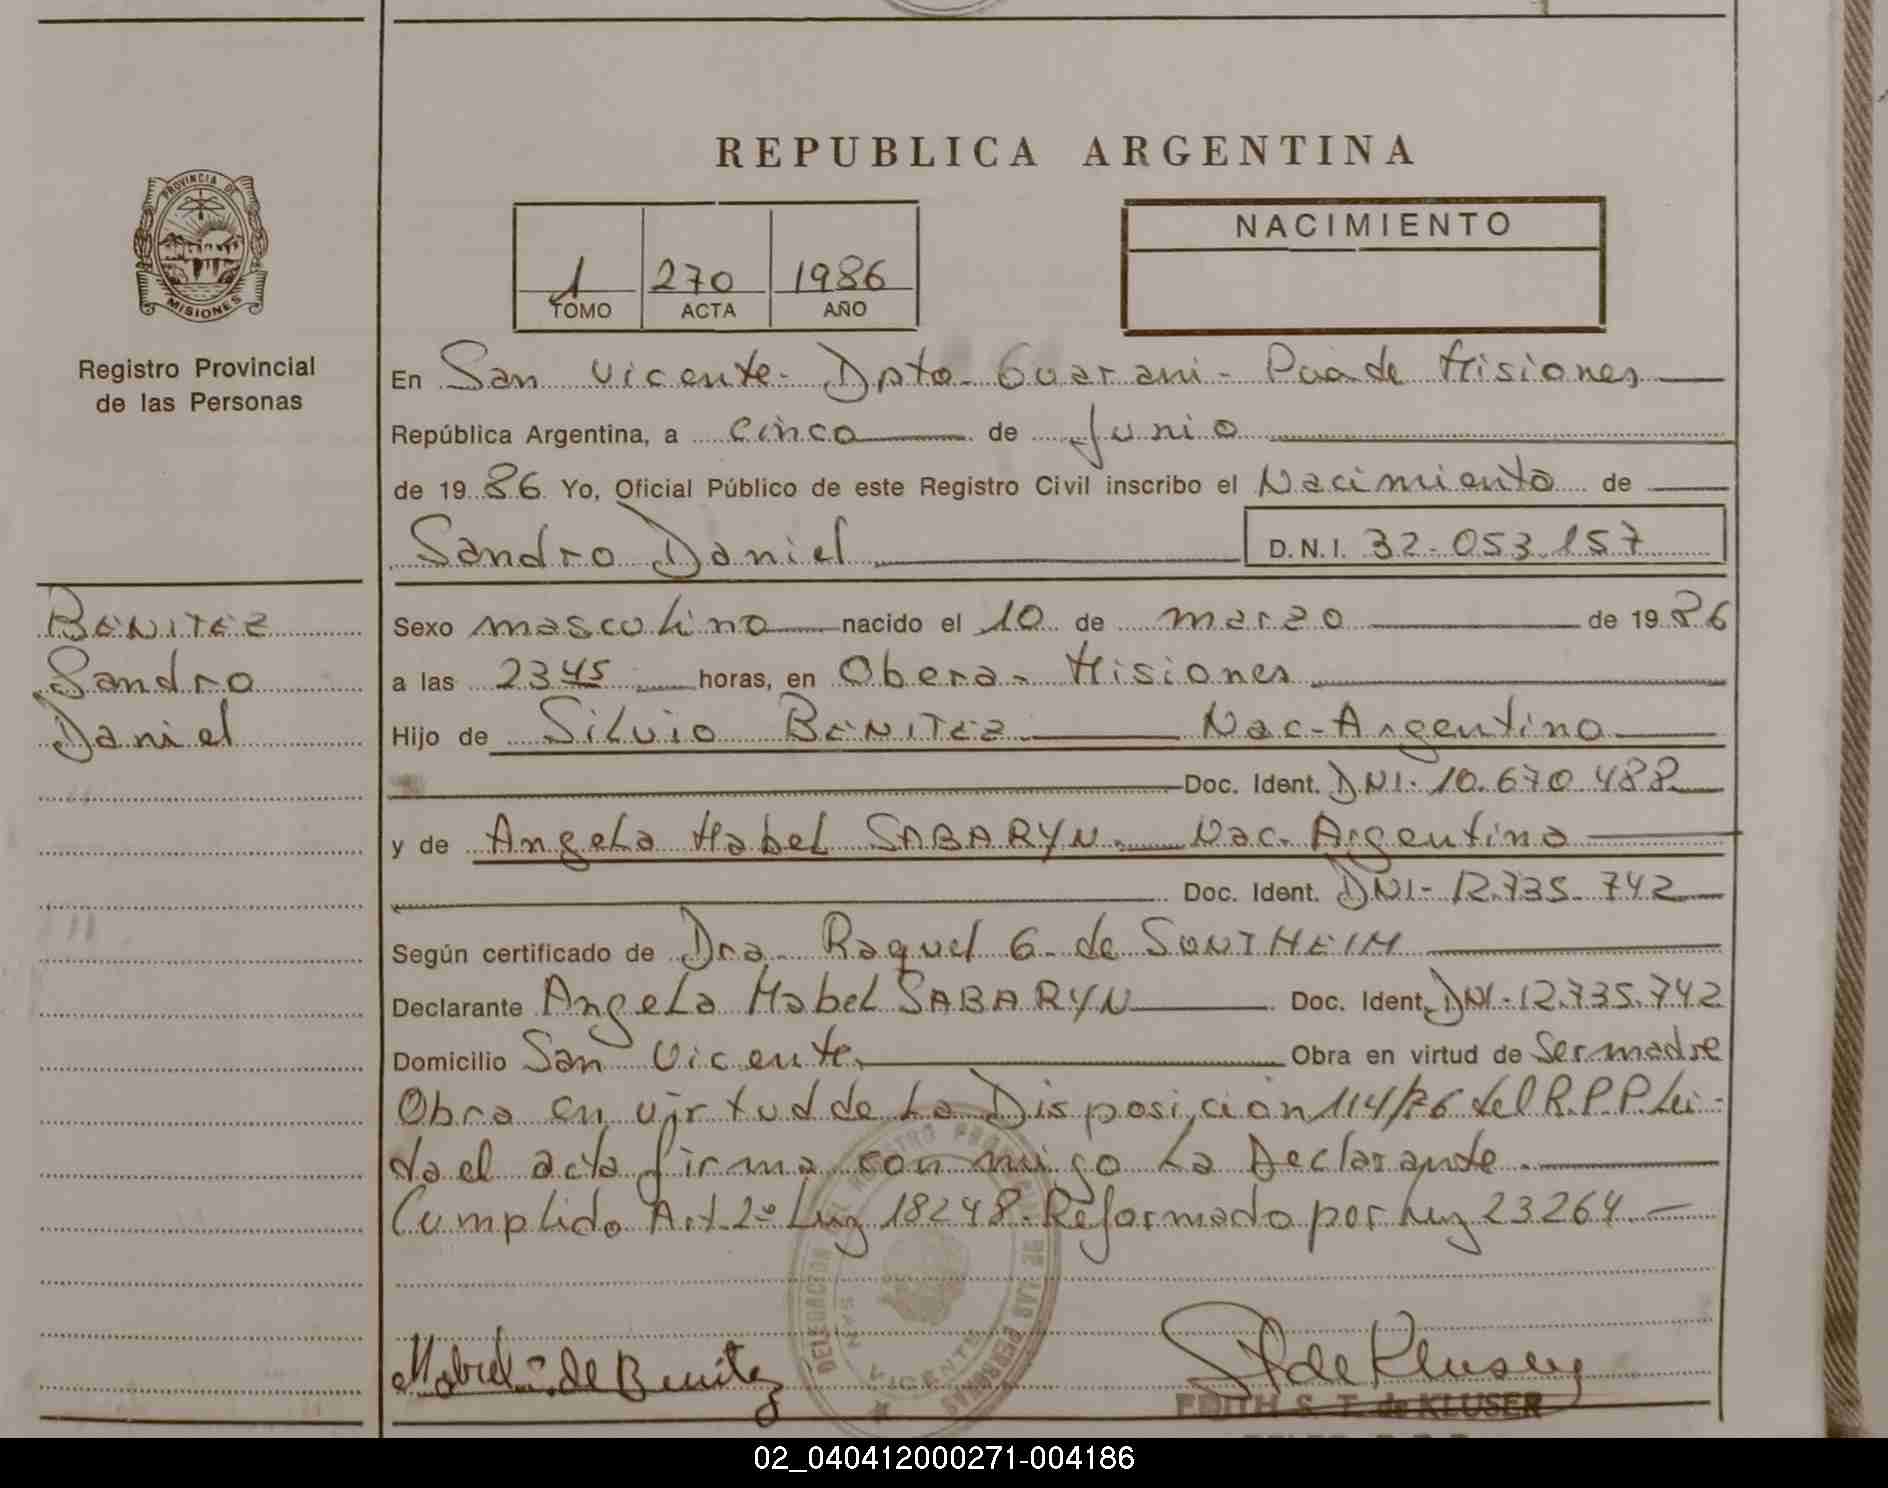 REPUBLICA ARGENTINA
PROVINCIA DE
MISIONES
Registro Provincial
de las Personas
1 270 1986
TOMO ACTA AÑO
NACIMIENTO
En San Vicente - Dpto Guarani - Pcia de Misiones
República Argentina, a cinco de Junio
de 1986 Yo, Oficial Público de este Registro Civil inscribo el Nacimiento de
Sandro Daniel D.N.I. 32.053.157
BENITEZ
Sandro
Daniel
Sexo masculino nacido el 10 de marzo de 1986
a las 23 45 horas, en Obera - Misiones
Hijo de Silvio BENITEZ Nac - Argentino
Doc. Ident. DNI - 10.670.488
y de Angela Mabel SABARYN - Nac - Argentina
Doc. Ident. DNI - 12.735.742
Según certificado de Dra. Raquel G. de SONTHEIM
Declarante Angela Mabel SABARYN Doc. Ident. DNI - 12.735.742
Domicilio San Vicente Obra en virtud de Ser madre
Obra en virtud de La Disposición 114/76 del R.P.P. Lei-
da el acta firma con migo La Declarante.
Cumplido Art. 2º Ley 18248 - Reformado por Ley 23264 -
DELEGACION DEL REGISTRO PROVINCIAL DE LAS PERSONAS
SAN VICENTE
Mabel S. de Benitez
St de Kluser
EDITH S. T. de KLUSER
02_040412000271-004186